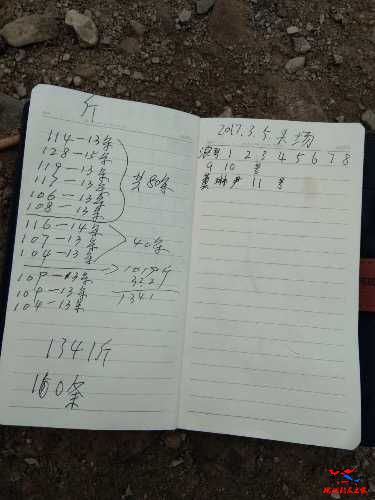 斤
114-13条
128-15条
119-13条
117-13条
106-13条
108-13条
共80条
116-14条
107-13条
104-13条
40条
109-13条
109-13条
104-13条
1019斤
322
1341
1341斤
160条
2017.3.5.
1 2 3 4 5 6 7 8
9 10 号
11 号